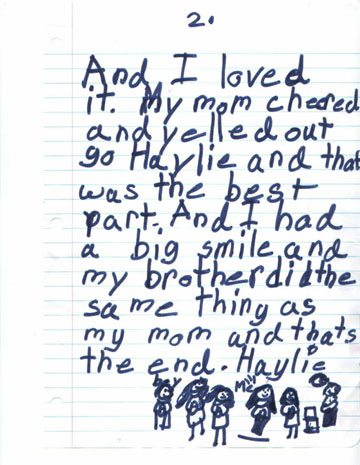 2.
And I loved
it. My mom cheered
and yelled out
go Haylie and that
was the best
part. And I had
a big smile and
my brother did the
same thing as
my mom and thats
the end. Haylie